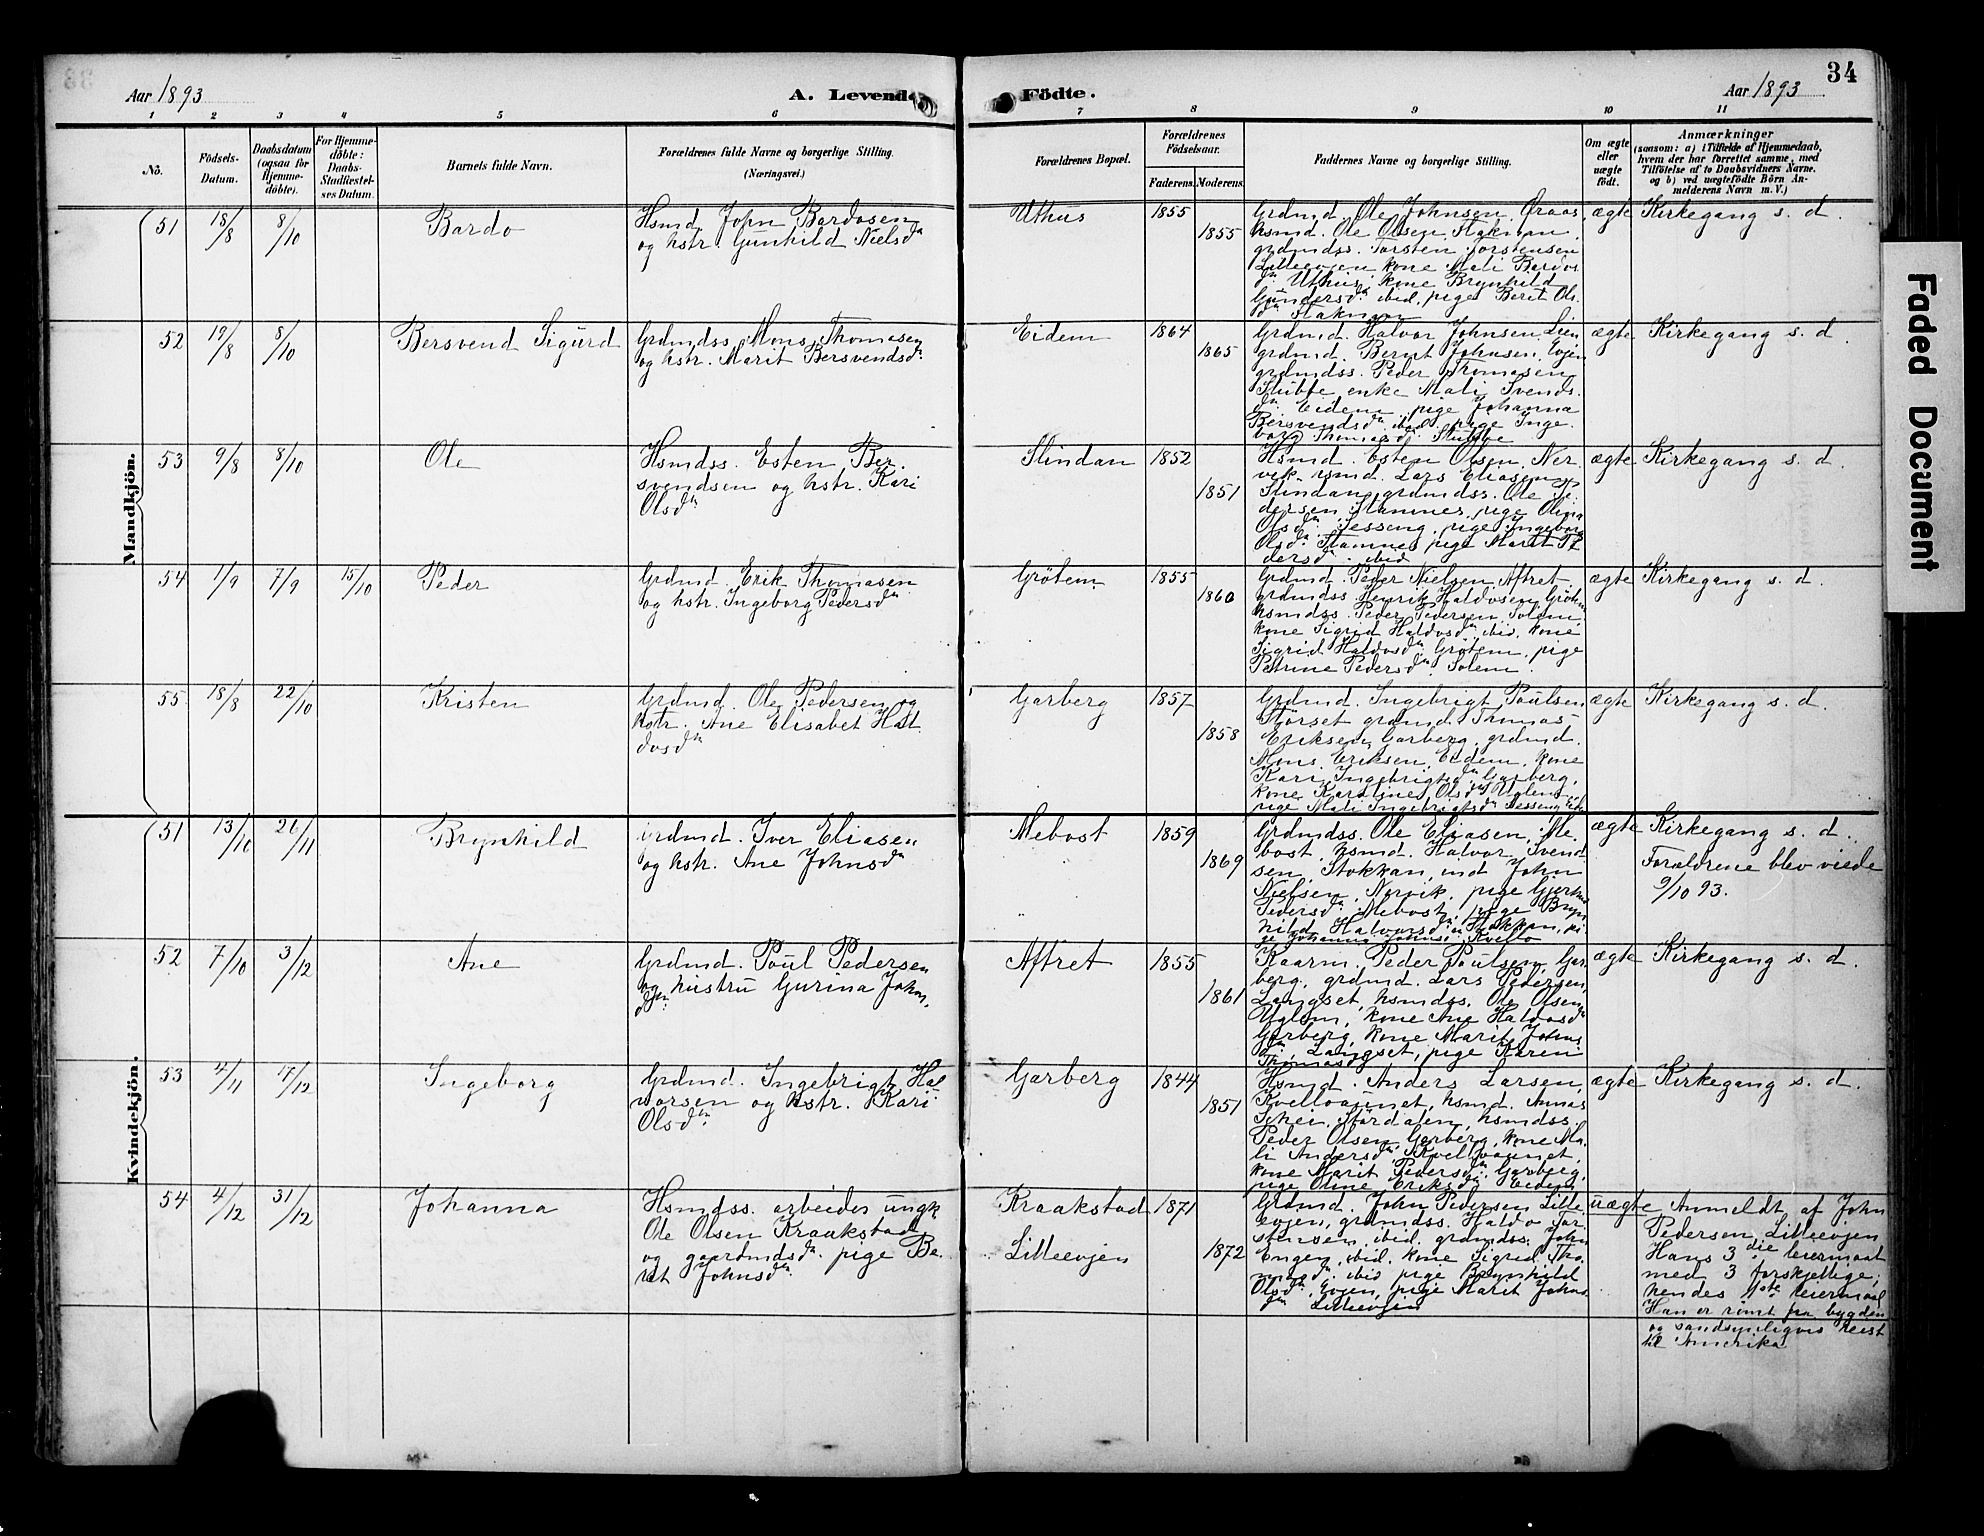 34
Aar 1893
A. Levende
Födte.
Aar 1893
1 2 3 4 5 6 7 8 9 10 11
No.
Födsels-Datum.
Daabsdatum (ogsaa for Hjemme-döbte).
For Hjemme-döbte: Daabs-Stadfæstel-ses Datum.
Barnets fulde Navn.
Forældrenes fulde Navne og borgerlige Stilling.
(Næringsvei.)
Forældrenes Bopæl.
Forældrenes Födselsaar.
Faderens. Moderens.
Faddernes Navne og borgerlige Stilling.
Om ægte eller uægte födt.
Anmærkninger
(saasom: a) i Tilfælde af Hjemmedaab,
hvem der har forrettet samme, med
Tilföielse af to Daabsvidners Navne.
og b) ved uægtefödte Börn An-
melderens Navn m. V.)
Mandkjön.
51 18/8 8/10 Bardo
Hsmd. John Bardosen
og hstr. Gunhild Nielsdtr
Uthus 1855 1855
Grdmd. Ole Johnsen Øraas
hsmd. Ole Olsen Flaknan,
grdmdss. Torsten Torstensen
Lilleevjen kone Mali Bardos
dtr Uthus, kone Brynhild
Gundersdtr ibid, pige Berit Ols
dtr Flaknan
ægte Kirkegang s. d.
52 19/8 8/10 Bersvend Sigurd
Grdmdss. Mons Thomasen
og hstr. Marit Bersvendsdtr
Eidem 1864 1865
Grdmd. Halvor Johnsen Lien
grdmd. Bernt Johnsen Evjen
grdmdss. Peder Thomasen
Stubbe enke Mali Svends
dtr Eidem pige Johanna
Bersvendsdtr ibid. pige Inge
borg Thomasdtr Stubbe
ægte Kirkegang s. d.
53 9/8 8/10 Ole
Hsmdss. Esten Ber-
svendsen og hstr. Kari
Olsdtr
Slindan 1852 1851
Hsmd. Esten Olsen Ner
vik hsmd. Lars Eliasen
Slindan, grdmdss. Ole Pe
dersen Stamnes, pige Olina
Olsdtr Sesseng, pige Ingeborg
Olsdtr Stamnes pige Marit Pe
dersdtr ibid
ægte Kirkegang s. d.
54 1/9 7/9 15/10 Peder
Grdmd. Erik Thomasen
og hstr. Ingeborg Pedersdtr
Grötem 1855 1860
Grdmd. Peder Nielsen Aftret
grdmdss Henrik Haldosen Grötem
hsmdss. Peder Pedersen Solem,
kone Sigrid Haldosdtr ibid, kone
Sigrid Haldosdtr Grötem, pige
Petrine Pedersdtr Solem.
ægte Kirkegang s. d.
55 18/8 22/10 Kristen
Grdmd. Ole Pedersen og
hstr. Ane Elisabet Hal
dosdtr
Garberg 1857 1858
Grdmd. Ingebrigt Poulsen
Störset grdmd. Thomas
Eriksen Garberg, grdmd.
Mons Eriksen, Eidem, kone
Kari Ingebrigtsdtr Garberg,
kone Karoline Olsdtr Uglem,
pige Mali Ingebrigtsdtr Sesseng
ægte Kirkegang s. d.
Kvindekjön.
51 13/10 26/11 Brynhild
Grdmd. Iver Eliasen
og hstr. Ane Johnsdtr
Mebost 1859 1869
Grdmdss. Ole Eliasen, Me
bost, hsmd. Halvor Svend
sen, Stokkan, ind John
Nielsen, Nervik, pige Gjertrud
Pedersdtr Mebost, pige Bryn
hild Halvorsdtr Stokkan, pi
ge Johanna Johnsdtr Kvello
ægte Kirkegang s. d.
Forældrene blev viede
9/10 93.
52 7/10 3/12 Ane
Grdmd. Poul Pedersen
og hustru Gurina Johns
dtr
Aftret 1855 1861
Kaarm. Peder Poulsen Gar
berg, grdmd. Lars Pedersen,
Langset, hsmdss. Ole Olsen
Uglem, kone Ane Haldosdtr
Garberg, kone Marit Johns
dtr Langset, pige Karen
Thomasdtr
ægte Kirkegang s. d.
53 4/11 17/12 Ingeborg
Grdmd. Ingebrigt Hal
vorsen og hstr. Kari
Olsdtr
Garberg 1844 1851
Hsmd. Anders Larsen,
Kvellovaunet, hsmd. Annas
Schei, Stördalen, hsmdss.
Peder Olsen, Garberg, kone Ma
li Andersdtr Kvellovaunet,
kone Marit Pedersdtr Garberg,
pige Oline Eriksdtr Eidem
ægte Kirkegang s. d.
54 4/12 31/12 Johanna
Hsmdss. arbeider ungk
Ole Olsen Kraakstad
og gaardmdsdtr pige Be
ret Johnsdtr
Kraakstad 1871
Lilleevjen 1872
Grdmd. John Pedersen Lille
evjen, grdmdss. Haldo Tor
stensen ibid. grdmdss. John
Engen, ibid. kone Sigrid Tho
masdtr ibid pige Brynhild
Olsdtr Evjen, pige Marit Johns
dtr Lilleevjen
uægte Anmeldt af John
Pedersen, Lilleevjen
Hans 3die leiermaal
med 3 forskjellige;
hendes 1ste leiermaal
Han er römt fra bygden
og sandsynligvis reist
til Amerika
Faded Document